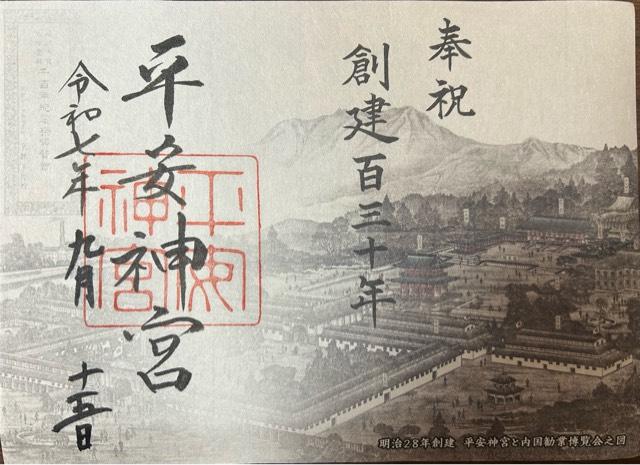 奉祝
創建百三十年
平安神宮
平安
神宮
令和七年 九月 十五日
明治28年創建 平安神宮と内国勧業博覧会之図